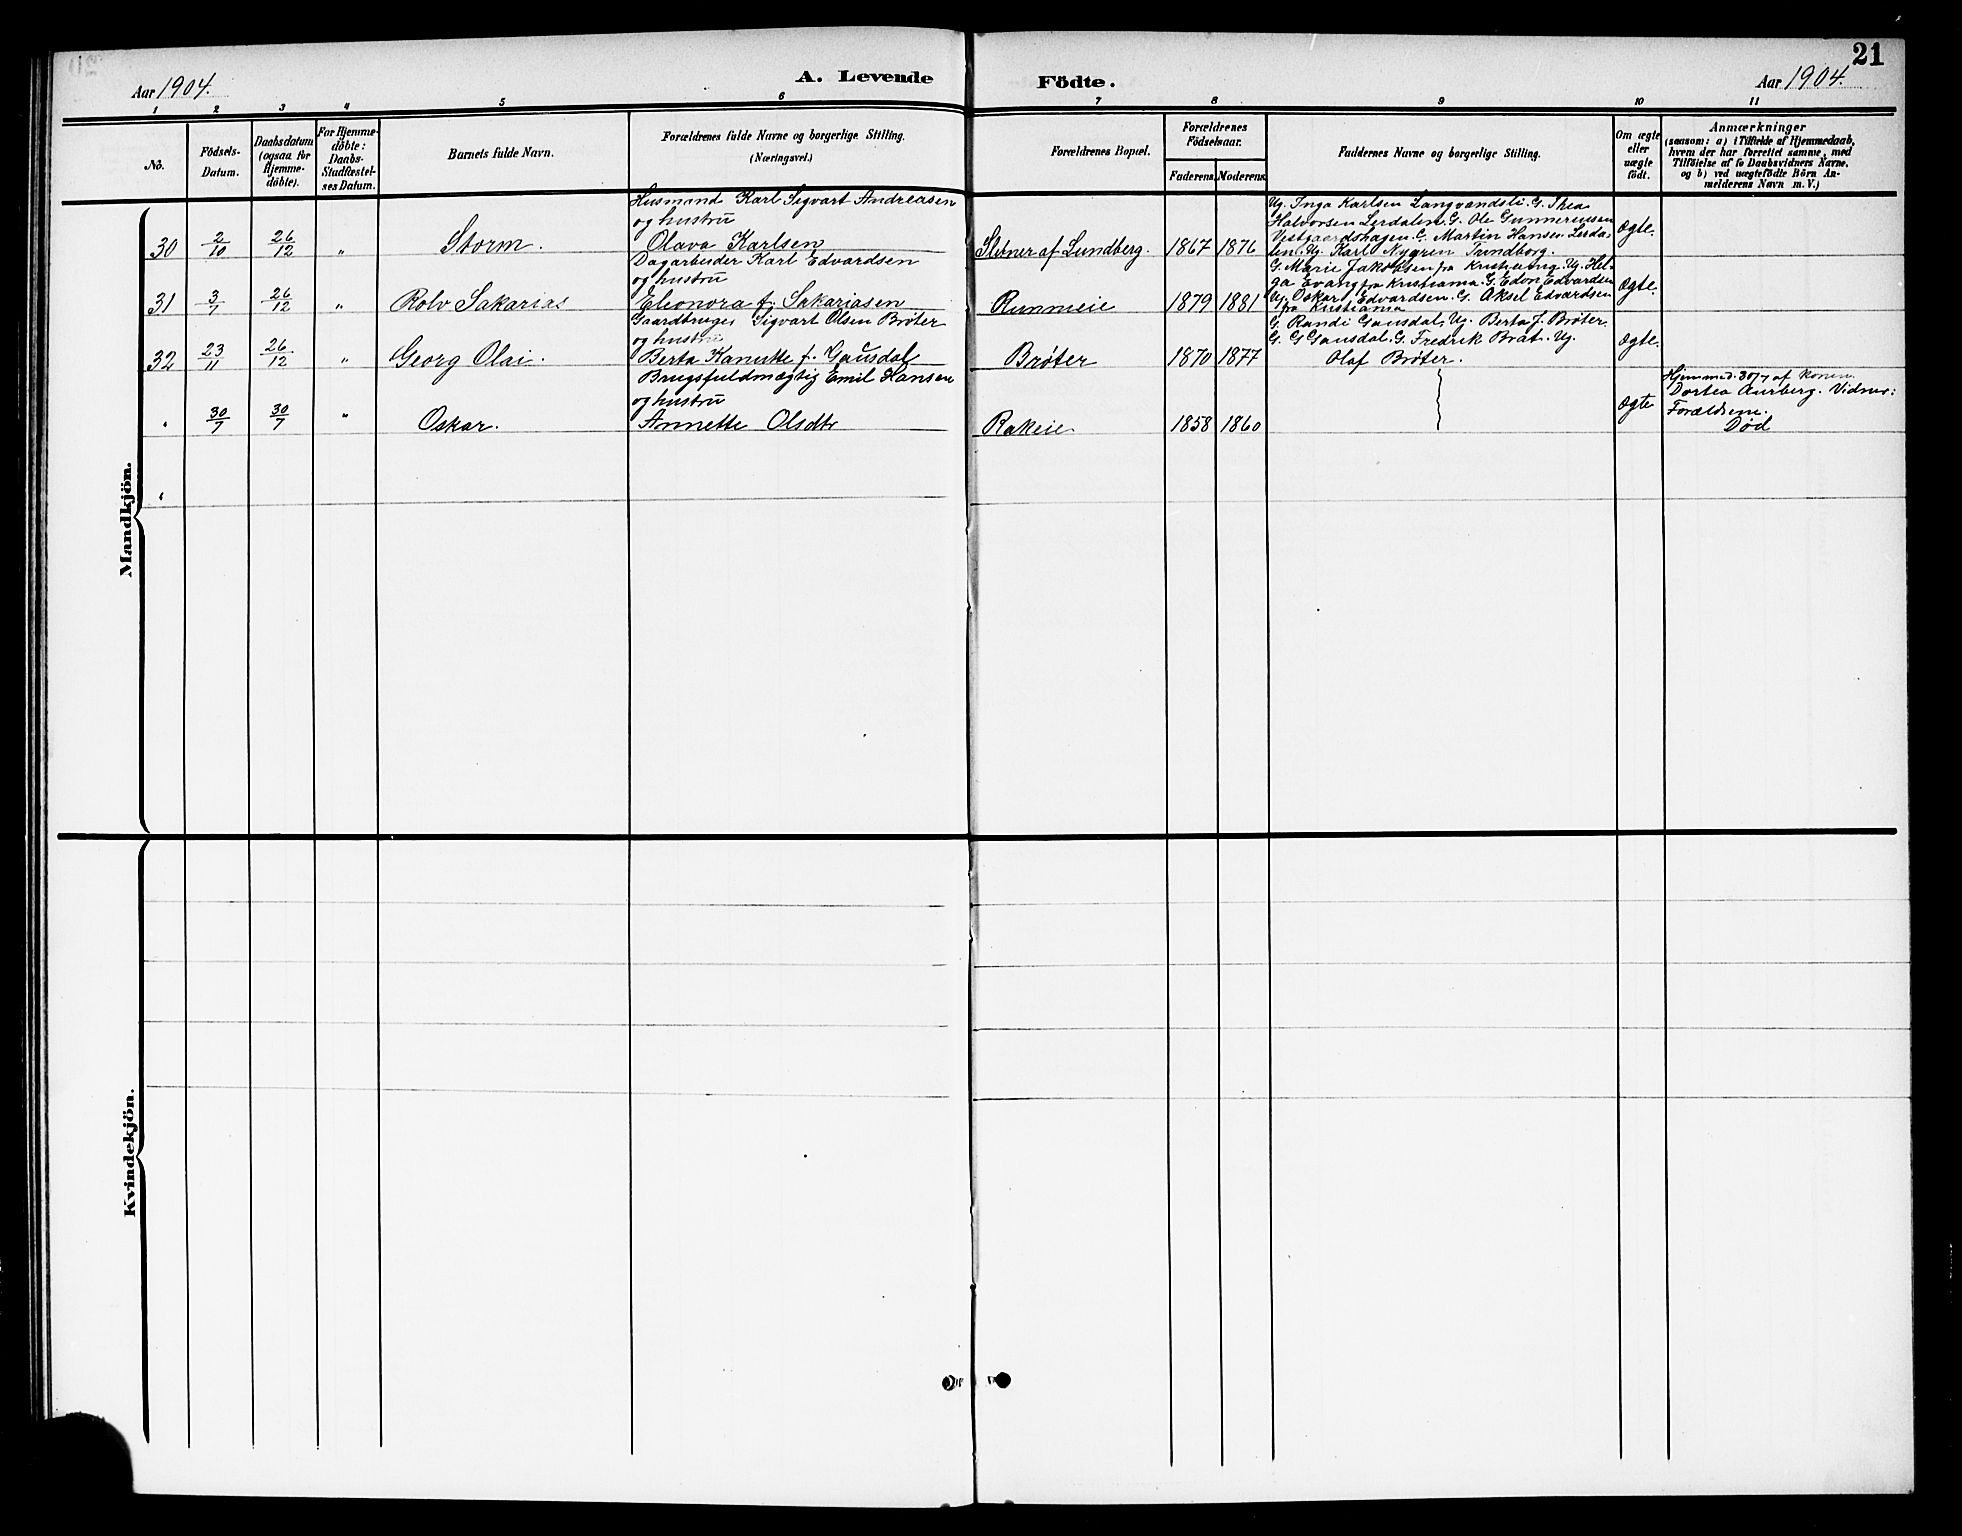 21
Aar 1904.
A. Levende Födte.
Aar 1904.
1 2 3 4 5 6 7 8 9 10 11
No.
Födsels-Datum.
Daabsdatum (ogsaa for Hjemme-döbte).
For Hjemme-döbte: Daabs-Stadfæstel-ses Datum.
Barnets fulde Navn.
Forældrenes fulde Navne og borgerlige Stilling.
(Næringsvei.)
Forældrenes Bopæl.
Forældrenes Födselsaar.
Faderens. Moderens.
Faddernes Navne og borgerlige Stilling.
Om ægte eller uægte födt.
Anmærkninger
(saasom: a) i Tilfælde af Hjemmedaab,
hvem der har forrettet samme, med
Tilföielse af to Daabsvidners Navne,
og b) ved uægtefödte Börn An-
melderens Navn m. V.)
Mandkjön.
Husmand Karl Sigvart Andreasen
og hustru
30 2/10 26/12 " Storm. Olava Karlsen Slebner af Lundberg. 1867 1876
Ug. Inga Karlsen Langvandsli. G. Thea
Halvorsen Lerdalen. G. Ole Gunnerussen
Vestgaardshagen. G. Martin Hansen Lerda-
len. Ug. Karl Nygren Tundborg.
Ægte.
Dagarbeider Karl Edvardsen
og hustru
31 3/7 26/12 " Rolv Sakarias Eleonora f. Sakariasen Runmeie 1879 1881
G. Marie Jakobsen fra Kristiania. Ug. Hel-
ga Evang fra Kristiania. G. Edvin Edvardsen
Ug. Oskar Edvardsen. G. Aksel Edvardsen
fra Kristiania
Ægte.
Gaardbruger Sigvart Olsen Brøter
og hustru
32 23/11 26/12 " Georg Olai. Berta Kanutte f. Gausdal Brøter 1870 1877
G. Randi Gausdal, Ug. Berta J. Brøter.
G. G Gausdal. G. Fredrik Brat. Ug.
Olaf Brøter.
Ægte.
Brugsfuldmægtig Emil Hansen
og hustru
" 30/7 30/7 " Oskar. Annette Olsdtr Rakeie 1858 1860
Ægte
Hjemmed. 30/7 af konen
Dortea Aurberg. Vidner:
Forældrene.
Død
"
Kvindekjön.